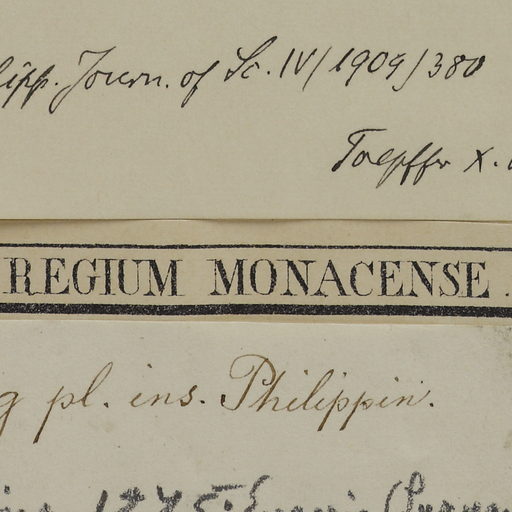 lipp. Journ. of Sc. IV/1909/380
Toepffer X.
REGIUM MONACENSE.
g pl. ins. Philippin.
1875